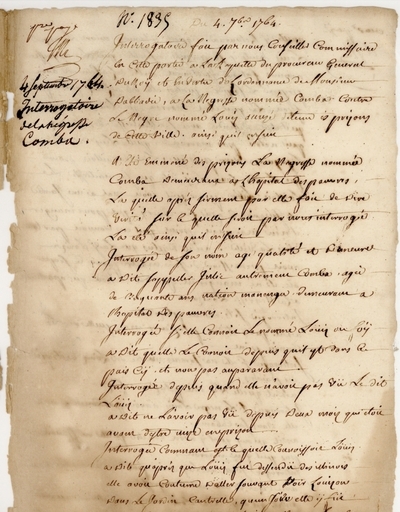 N. 1835
Du 4. 7bre 1764.
4 Septembre 1764.
Interrogatoire
de la négresse
Comba.
Interrogatoire fait par nous Conseiller Commissaire
en cette partie a la Requette du procureur General
du Roy et en vertu de l'ordonnance de Monsieur
a la Negresse nommée Comba Contre
Le Negre nommé Louis aussi detenu es prisons
de cette Ville, ainsi quil ensuit
La Negresse nommée
Comba Demeurant a l'hopital des pauvres,
La quelle après serment par elle fait de dire
verité sur le quelle seroit par nous interrogée
La ainsi quil ensuit
Interrogée de son nom age qualité et Demeure
a Dit s'appeller Julie autrement Comba, agée
de Cinquante ans nation demeurant a
l'hopital des pauvres
Interrogée si elle Connoit Le nommé Louis
a Dit quelle Le Connoit depuis quil est dans le
pais et non pas auparavant
Interrogée depuis quand elle n'avoit pas vu Le dit
Louis
a Dit ne l'avoir pas vu depuis Deux mois quil étoit
avant d'etre mis en prison
Interrogée Comment est ce quelle Connoissoit Louis
a Dit qu'après que Louis fut descendu des
elle avoit Coutume d'aller souvent voir Louison
dans le Jardin